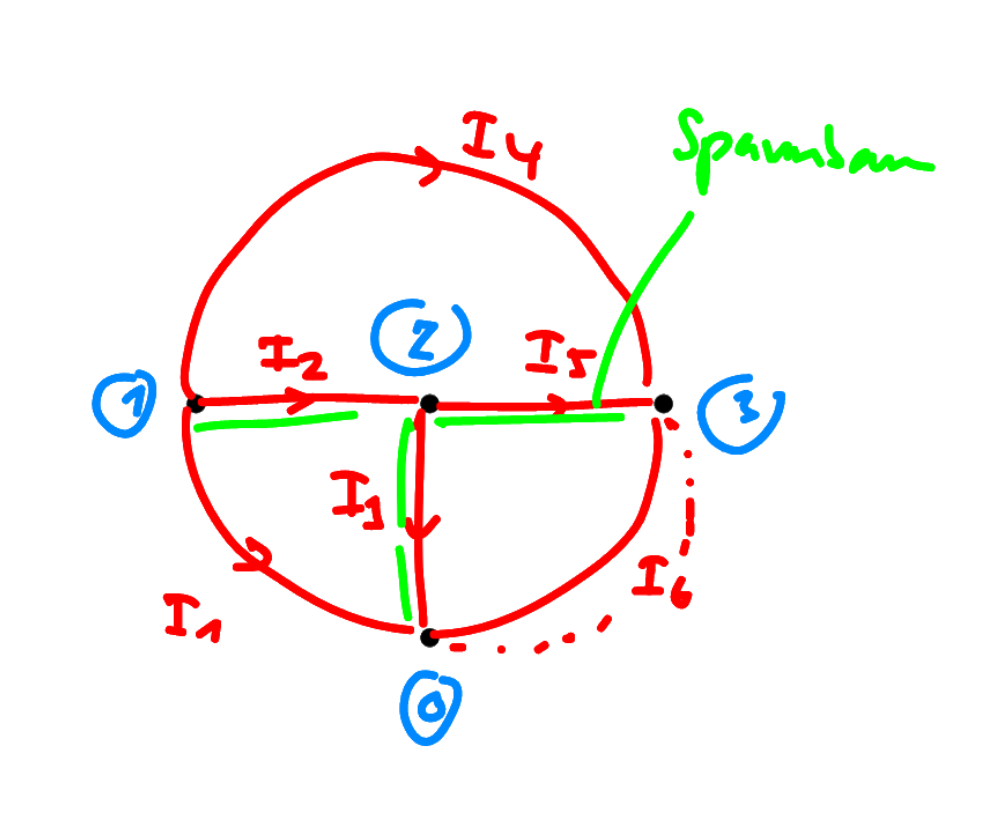 I4
Spannbaum
2
I2
I5
1
3
I3
I6
I1
0